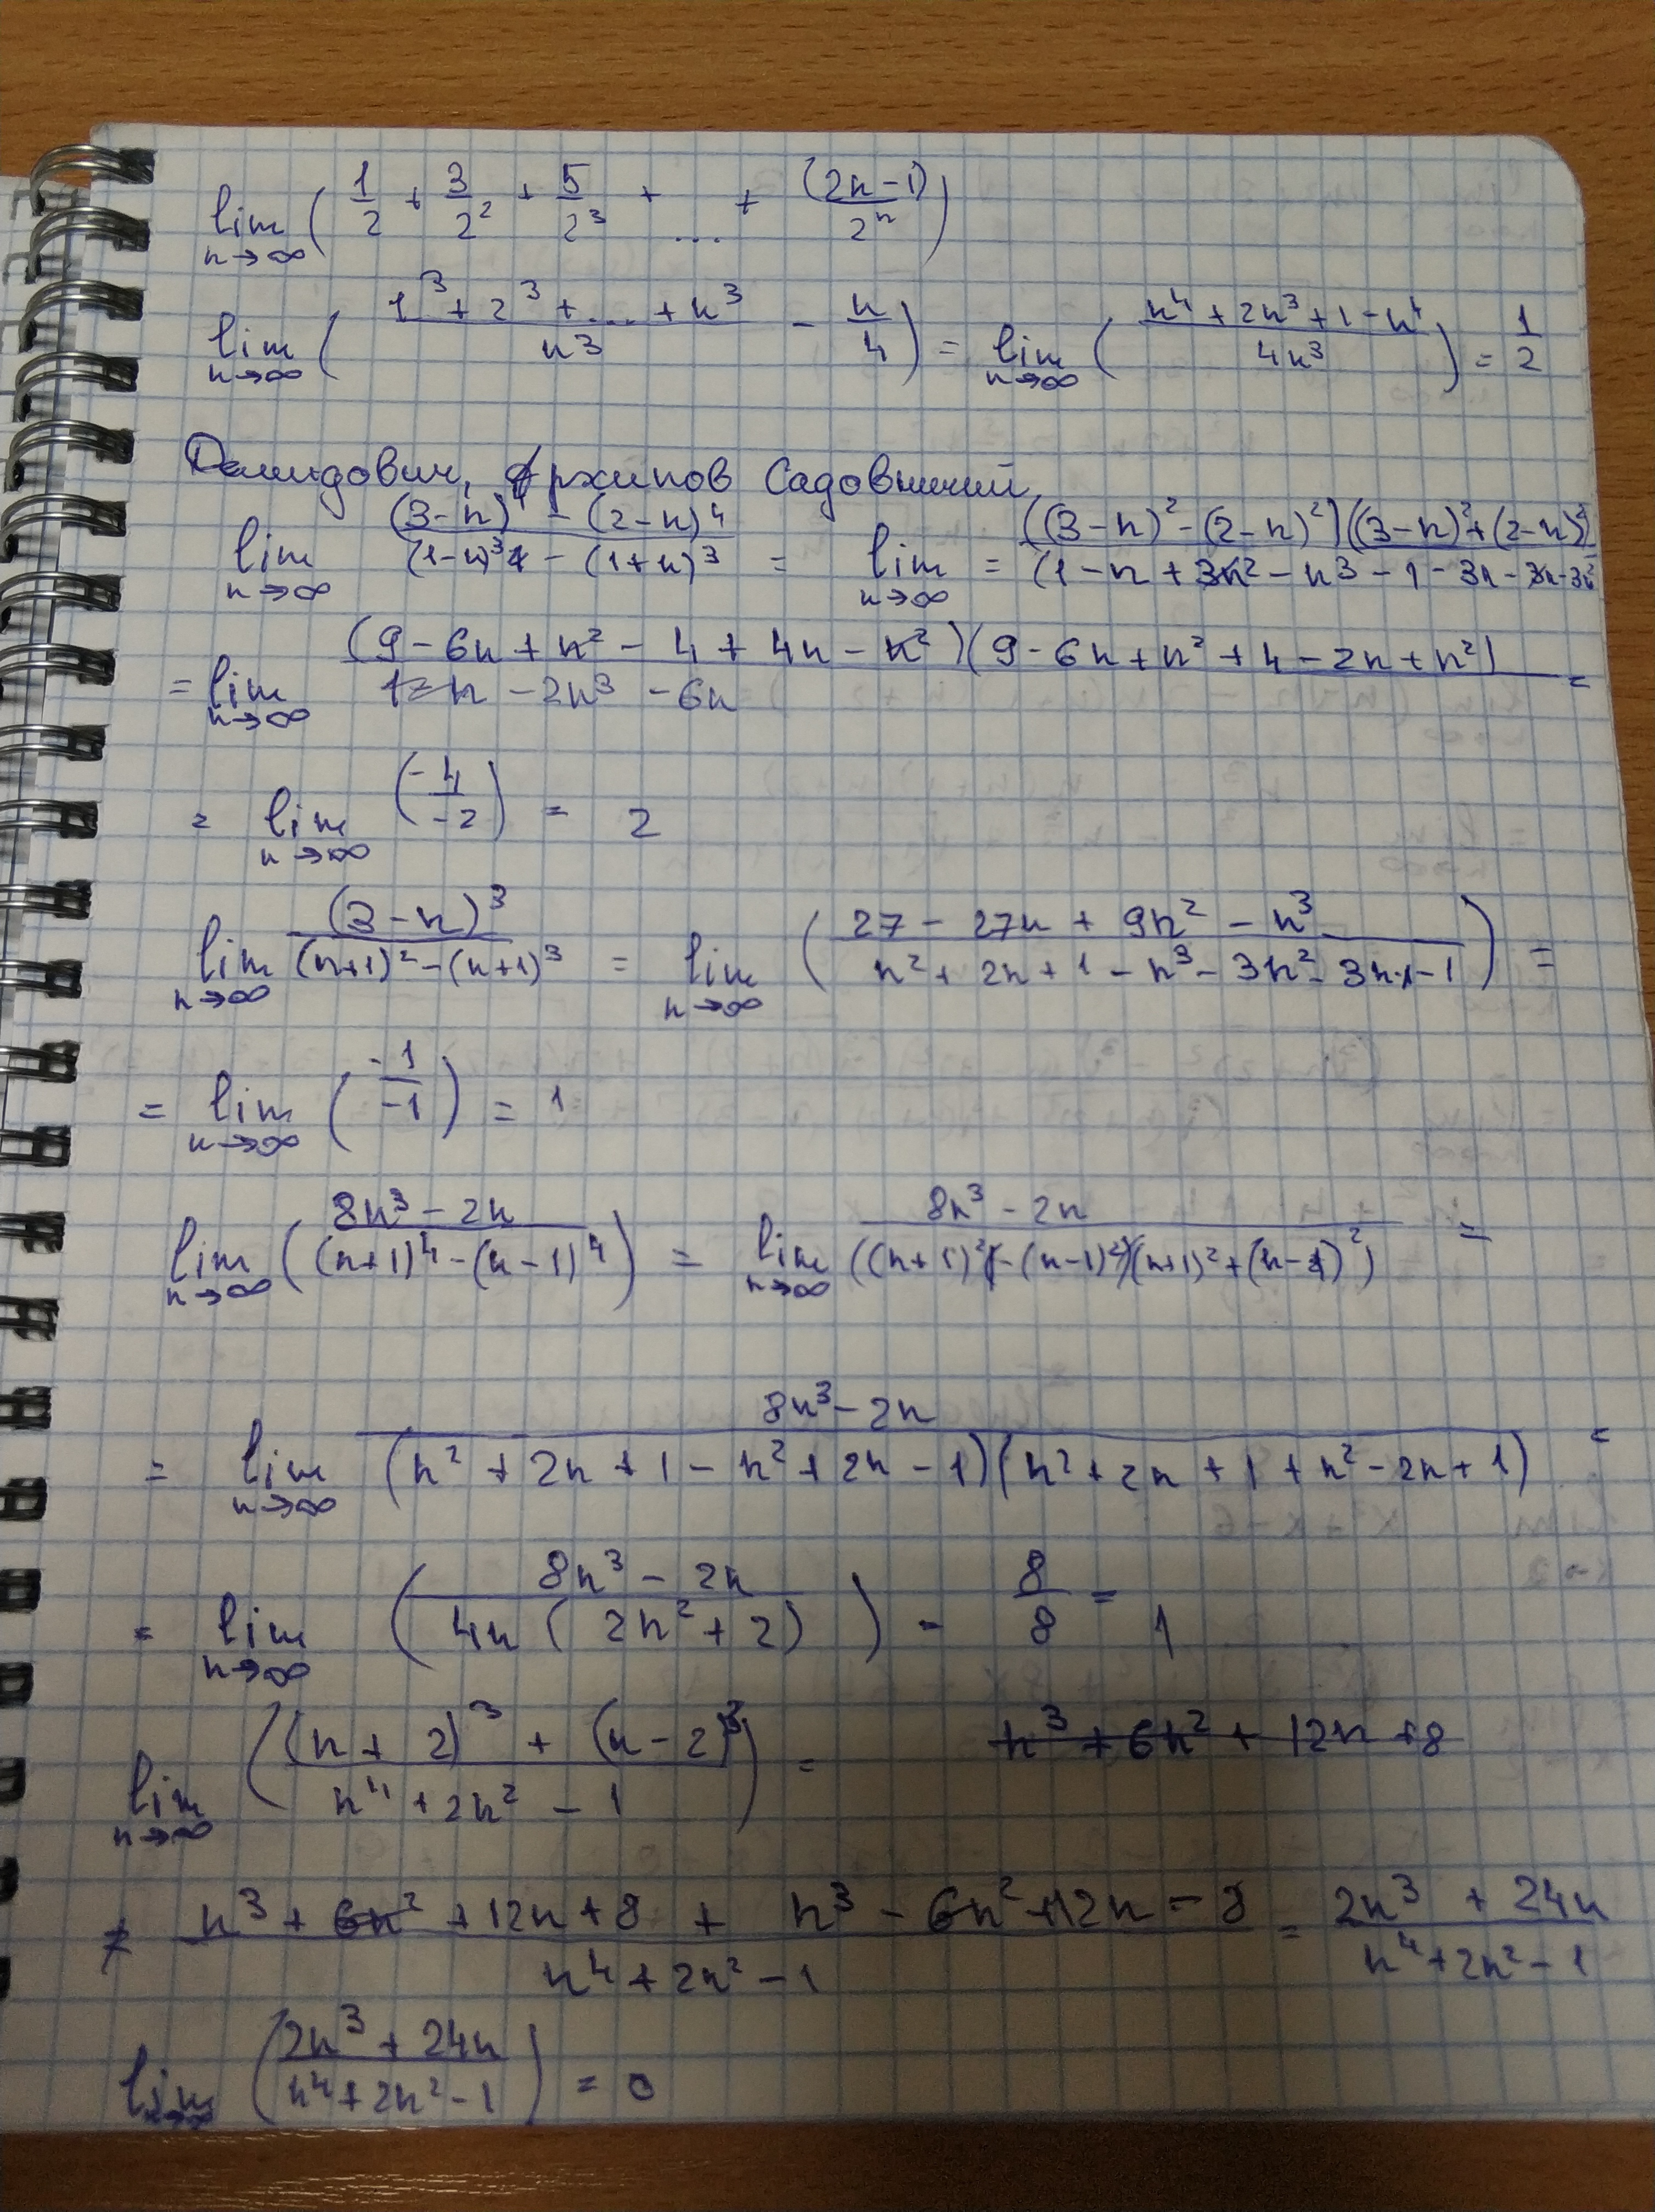 lim n→∞ ( 1/2 + 3/2² + 5/2³ + ... + (2n-1)/2ⁿ )
lim n→∞ ( (1³ + 2³ + ... + n³)/n³ - n/4 ) = lim n→∞ ( (n⁴ + 2n³ + 1 - n⁴)/4n³ ) = 1/2
Демидович, Архипов Садовничий,
lim n→∞ ((3-n)⁴ - (2-n)⁴)/((1-n)³ - (1+n)³) = lim n→∞ = ((3-n)² - (2-n)²)((3-n)² + (2-n)²)/(1 - n + 3n² - n³ - 1 - 3n - 3n - 3n²
= lim n→∞ (9 - 6n + n² - 4 + 4n - n²)(9 - 6n + n² + 4 - 2n + n²)/(- 2n³ - 6n) =
= lim n→∞ (-4/-2) = 2
lim n→∞ (3-n)³/((n+1)² - (n+1)³) = lim n→∞ ( (27 - 27n + 9n² - n³)/(n² + 2n + 1 - n³ - 3n² - 3n - 1) ) =
= lim n→∞ ( -1/-1 ) = 1
lim n→∞ ( (8n³ - 2n)/((n+1)⁴ - (n-1)⁴) ) = lim n→∞ (8n³ - 2n)/((n+1)² - (n-1)²)((n+1)² + (n-1)²) =
= lim n→∞ (8n³ - 2n)/(n² + 2n + 1 - n² + 2n - 1)(n² + 2n + 1 + n² - 2n + 1) =
= lim n→∞ ( (8n³ - 2n)/4n(2n² + 2) ) = 8/8 = 1
lim n→∞ ( ((n+2)³ + (n-2)³)/(n⁴ + 2n² - 1) ) = n³ + 6n² + 12n + 8
≠ (n³ + 6n² + 12n + 8 + n³ - 6n² + 12n - 8)/(n⁴ + 2n² - 1) = (2n³ + 24n)/(n⁴ + 2n² - 1)
lim n→∞ ( (2n³ + 24n)/(n⁴ + 2n² - 1) ) = 0